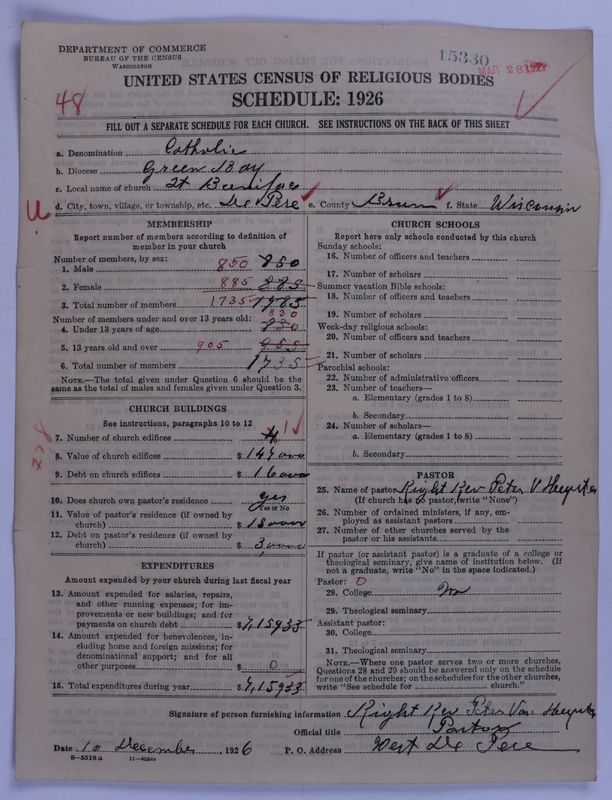 DEPARTMENT OF COMMERCE
BUREAU OF THE CENSUS
WASHINGTON
15330
MAR 28 1927
UNITED STATES CENSUS OF RELIGIOUS BODIES
48
SCHEDULE: 1926
FILL OUT A SEPARATE SCHEDULE FOR EACH CHURCH. SEE INSTRUCTIONS ON THE BACK OF THIS SHEET
a. Denomination Catholic
b. Diocese Green Bay
c. Local name of church St Boniface
d. City, town, village, or township, etc. De Pere e. County Brown f. State Wisconsin
MEMBERSHIP
Report number of members according to definition of
member in your church
Number of members, by sex:
1. Male 850 850
2. Female 885 885
3. Total number of members 1735
Number of members under and over 13 years old: 830
4. Under 13 years of age
5. 13 years old and over 905
6. Total number of members 1735
NOTE.—The total given under Question 6 should be the
same as the total of males and females given under Question 3.
CHURCH BUILDINGS
See instructions, paragraphs 10 to 12
7. Number of church edifices 1
8. Value of church edifices $
9. Debt on church edifices $ 16000
10. Does church own pastor's residence yes
Yes or No
11. Value of pastor's residence (if owned by
church) $ 18000
12. Debt on pastor's residence (if owned by
church) $ 3,000
EXPENDITURES
Amount expended by your church during last fiscal year
13. Amount expended for salaries, repairs,
and other running expenses; for im-
provements or new buildings; and for
payments on church debt $
14. Amount expended for benevolences, in-
cluding home and foreign missions; for
denominational support; and for all
other purposes $ 0
15. Total expenditures during year $
CHURCH SCHOOLS
Report here only schools conducted by this church
Sunday schools:
16. Number of officers and teachers
17. Number of scholars
Summer vacation Bible schools:
18. Number of officers and teachers
19. Number of scholars
Week-day religious schools:
20. Number of officers and teachers
21. Number of scholars
Parochial schools:
22. Number of administrative officers
23. Number of teachers—
a. Elementary (grades 1 to 8)
b. Secondary
24. Number of scholars—
a. Elementary (grades 1 to 8)
b. Secondary
PASTOR
25. Name of pastor Right Rev Peter V
(If church has no pastor, write "None")
26. Number of ordained ministers, if any, em-
ployed as assistant pastors
27. Number of other churches served by the
pastor or his assistants
If pastor (or assistant pastor) is a graduate of a college or
theological seminary, give name of institution below. (If
not a graduate, write "No" in the space indicated.)
Pastor: 0
28. College No
29. Theological seminary
Assistant pastor:
30. College
31. Theological seminary
NOTE.—Where one pastor serves two or more churches,
Questions 28 and 29 should be answered only on the schedule
for one of the churches; on the schedules for the other churches,
write "See schedule for church."
Signature of person furnishing information Right Rev Peter Van
Official title Pastor
Date 10 December, 1926 P. O. Address West De Pere
8—5518 a